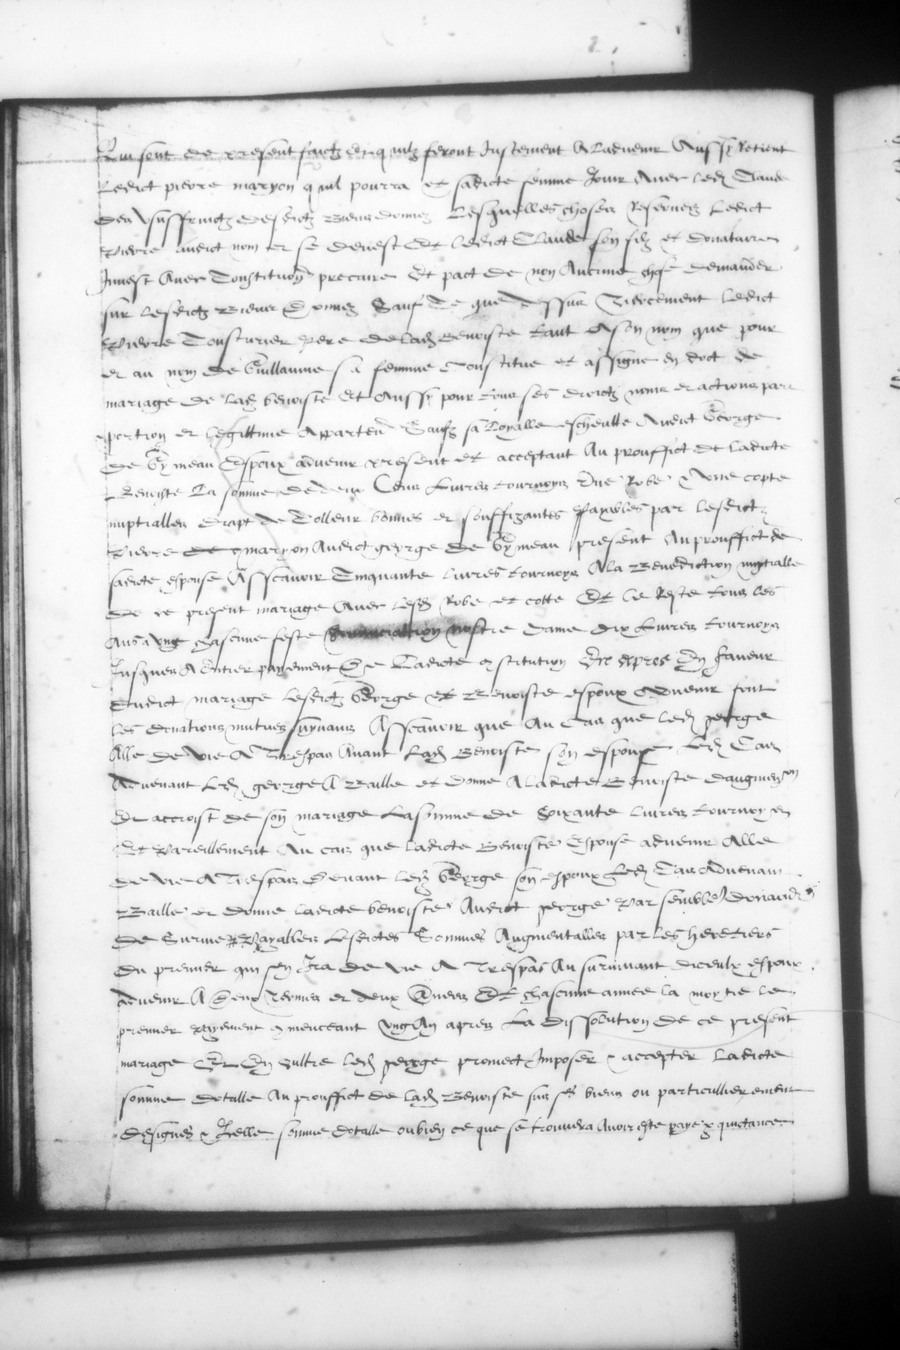 Qui sont de present faictz et qui se feront Justement A ladvenir Aussy Retient
Ledict pierre maryon quil pourra et sadicte femme Jouir Avec led Claude
des Usuffruictz desdictz Biens donnez Lesquelles choses Reservees Ledict
Pierre audict nom et se devest Et ledict Claude son filz et donataire
Invest Avec Constitution precaire Et pact de non Aucune chose demander
sur lesdictz Biens donnez Sauf Ce que dessus Tiercement ledict
Pierre Cousturier pere de lad Benoiste tant A son nom que pour
et au nom de Guillaume sa femme Constitue et assigne en doct de
mariage de lad benoiste Et Aussy pour tous ses droictz noms et actions part
portion et legittime Appartenir Saufz sa Loyalle escheutte Audict George
de Gymeau Espoux advenir present et acceptant Au prouffict de ladicte
Benoiste La somme de deux Cens Livres tournoys Une Robe Une cotte
nuptialles drapt de Colleur bonnes et souffizantes payables par lesdictz
Pierre de maryon Audict george de Gymeau present Au prouffict de
sadicte espouse Asscavoir Cinquante livres tournoys A la Benediction nuptialle
de ce present mariage Avec lesd Robe et cotte Et le Reste tous les
Ans a Ung chascune feste nostre dame dix Livres tournoys
Jusques A Entier payement De Ladicte constitution En faveur
dudict mariage lesdictz George et Benoiste espoux Advenir font
les donations mutues suyvans Asscavoir que Au Cas que led george
Alle de Vie A Trespas Avant Lad Benoiste son espouse Led Cas
Advenant Led george A Baille et donne A Ladicte Benoiste daugmen
Et accroist de son mariage La somme de Soixante livres tournoys
Et Pareillement Au cas que ladicte Benoiste Espouse advenir Alle
de Vie A Trespas Devant led George son espoux Led Cas Advenant
Baille et donne ladicte benoiste Audict george Par semblable donaon
de Survie Payables Lesdictes Sommes Augmentalles par les heretiers
du premier qui sen Ira de vie A Trespas Au survivant diceulx espoux
advenir A deux Termes et deux Annees Et chascune annee la moytie le
premier payement commenceant Ung An apres La dissolution de ce present
mariage Et En oultre led george promect Imposer accepter Ladicte
somme dotalle Au prouffict de lad Benoiste sur ses biens ou particullierement
designes Icelle somme dotalle oubien ce que se trouvera Avoir este paye quictance